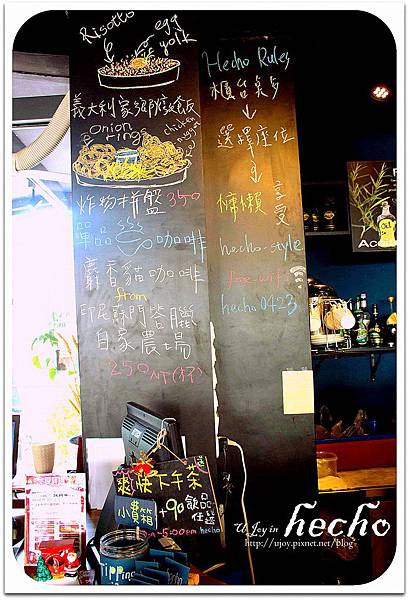 Risotto
egg
yolk
義大利家鄉燉飯
onion
ring
chicken
炸物拼盤 350
單品 咖啡
麝香貓咖啡
from
印尼蘇門答臘
自家農場
250NT(杯)
Hecho Rules
櫃台美步
選擇座位
慵懶
享受
hecho-style
free-wifi
hecho0423
爽快下午茶
小費箱 +90 飲品任選
-5:00pm hecho
Tipping
U Joy in hecho
http://ujoy.pixnet.net/blog